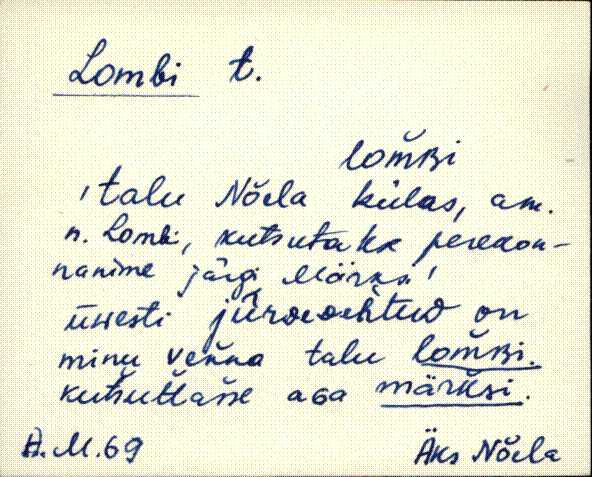 Lombi t.
lom̆ʙi
'talu Nõela külas, am.
n. Lombi, kutsutakse perekon-
nanime järgi Märksi'
uvvesti
on
minu venna talu lom̆ʙi.
kutsuttasse aɢa mär̆ksi.
A.M.69 Äks Nõela